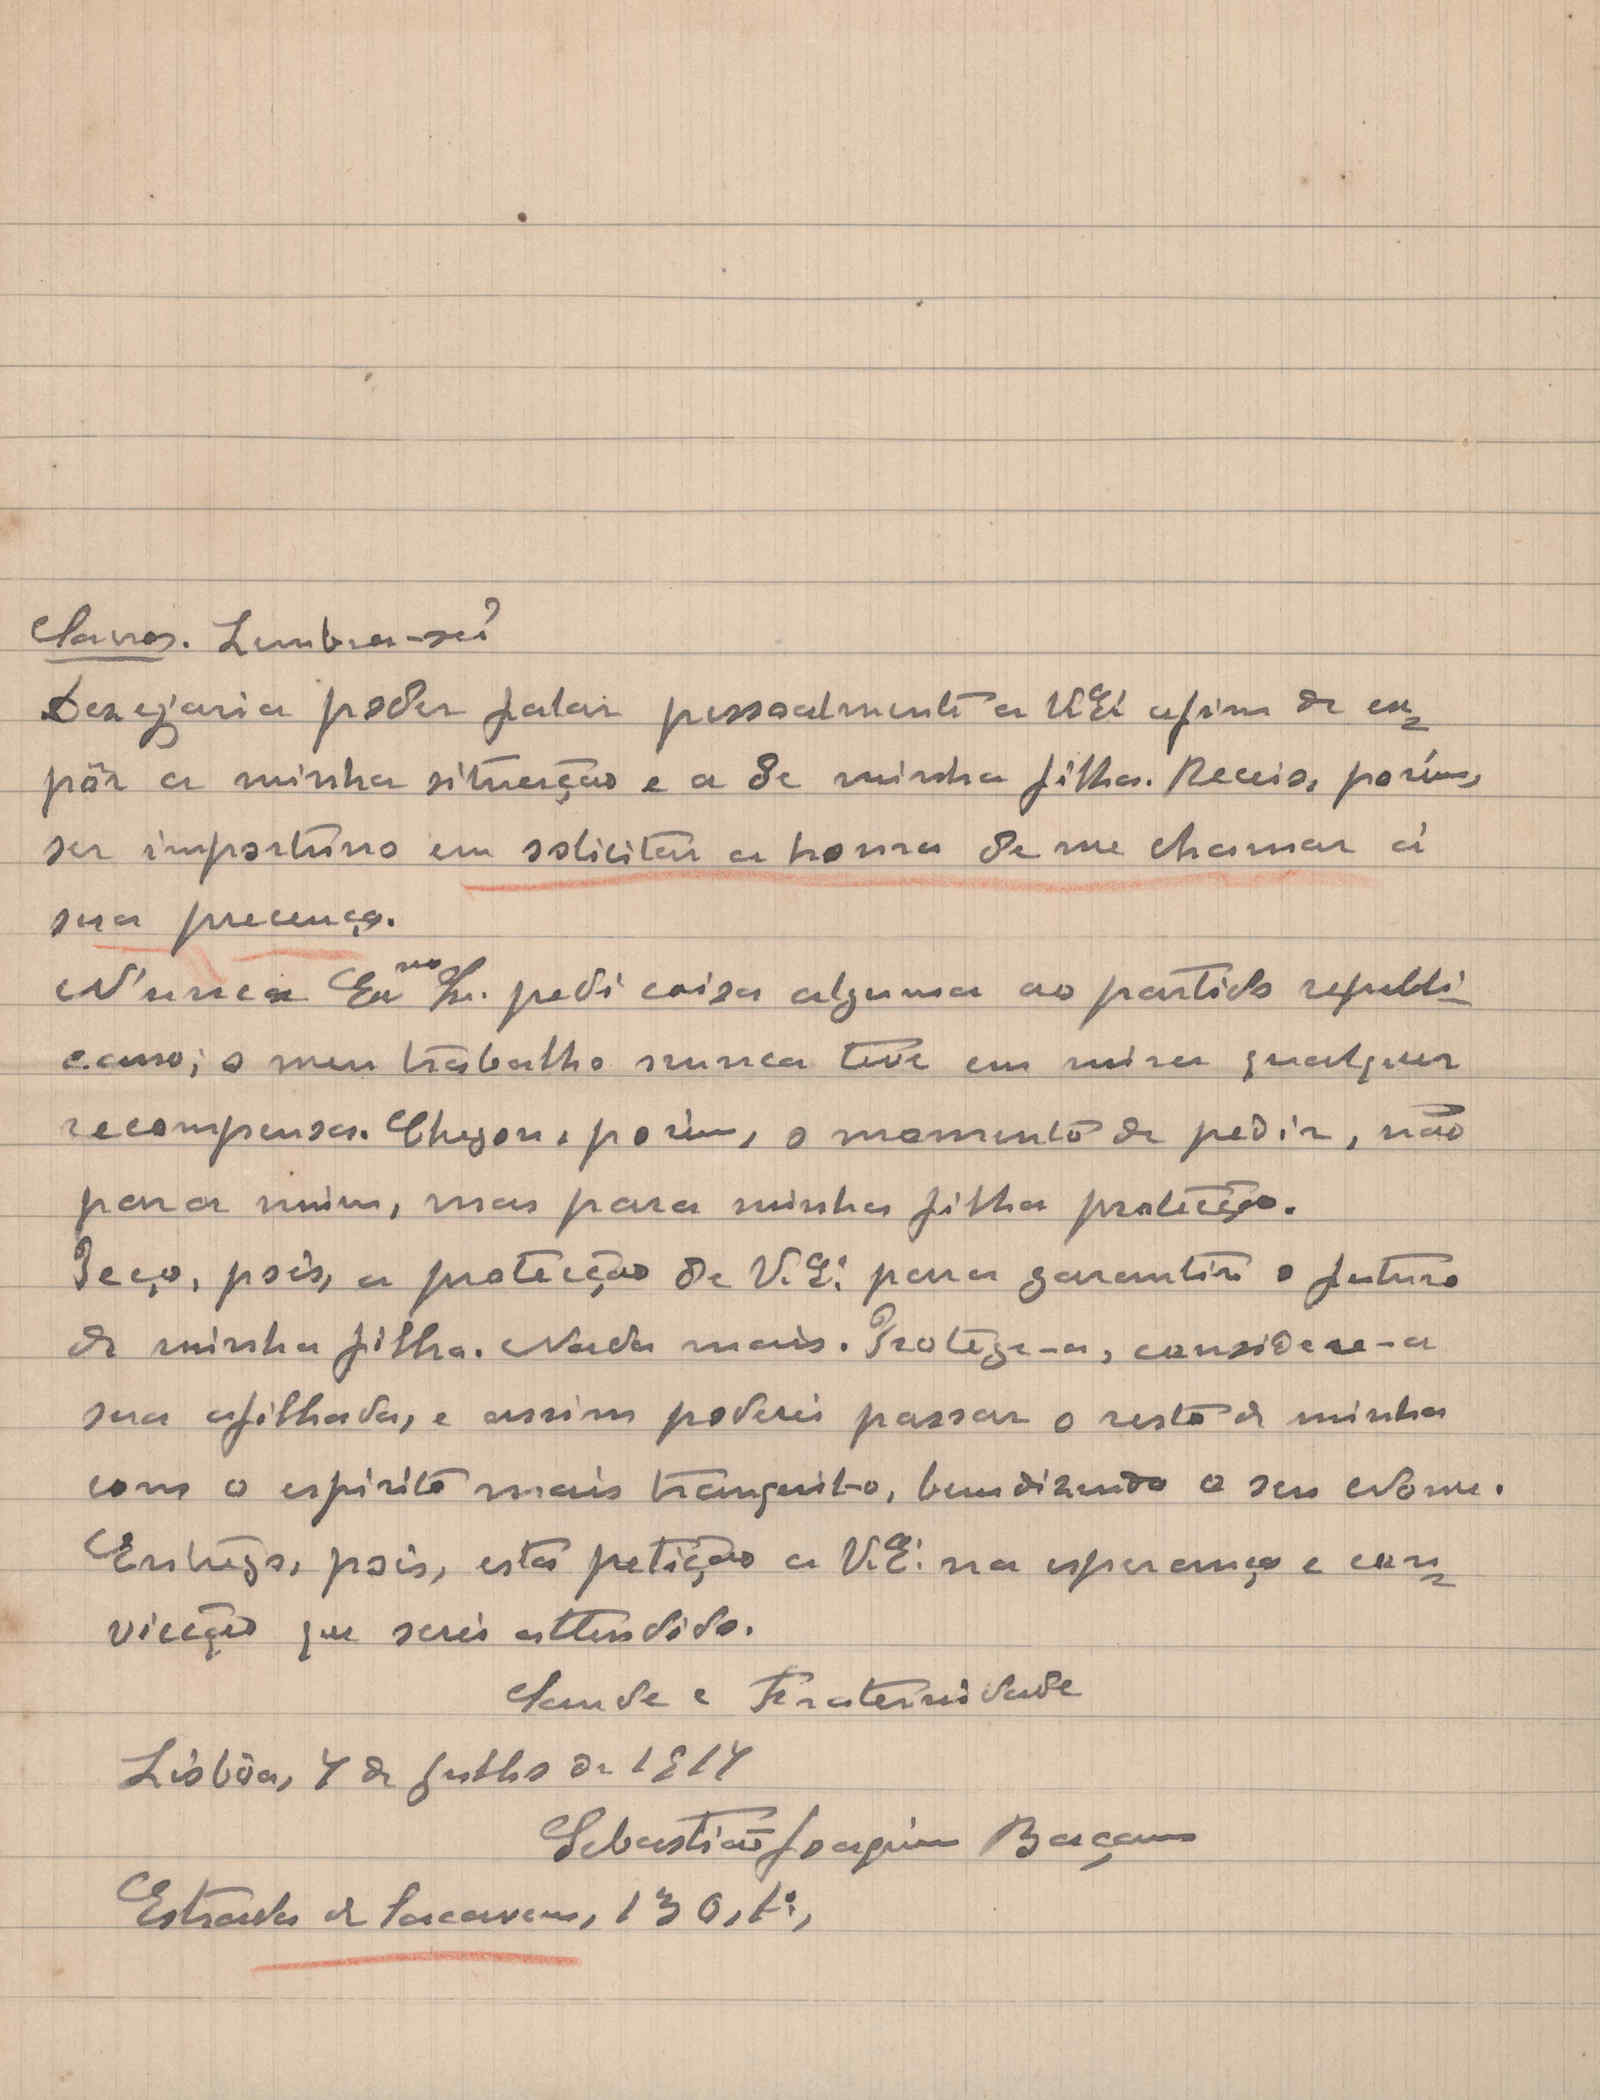 Lembra-se?
Dezejaria poder falar pessoalmente a V. Ex. afim de ex=
pôr a minha situação e a de minha filha. Receio, porém,
ser importuno em solicitar a honra de me chamar á
sua precença.
Nunca Exmo Sr. pedi coisa alguma ao partido republi-
cano; o meu trabalho nunca teve em mira qualquer
recompensa. Chegou, porém, o momento de pedir, não
para mim, mas para minha filha protecção.
Peço, pois, a protecção de V. E. para garantir o futuro
de minha filha. Nada mais. Protege-a, considere-a
sua afilhada, e assim poderei passar o resto de minha
com o espirito mais tranquilo, bemdizendo o seu Nome.
Entrego, pois, esta petição a V. E. na esperança e con=
vicção que serei attendido.
Saude e Fraternidade
Lisbôa, 4 de Julho de 1914
Sebastião Joaquim Baçam
Estrada de Sacavem, 130, 1º,